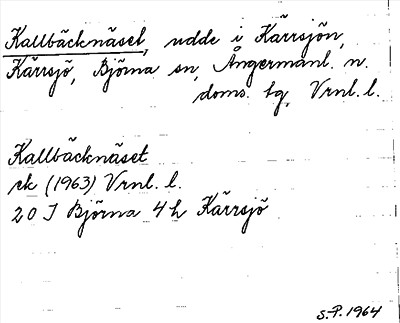 Kallbäcknäset, udde i Kärrsjön,
Kärrsjö, Björna sn, Ångermanl. n.
doms. tg, Vrnl. l.
Kallbäcknäset
ek (1963) Vrnl. l.
20 I Björna 4 h Kärrsjö
S.P. 1964